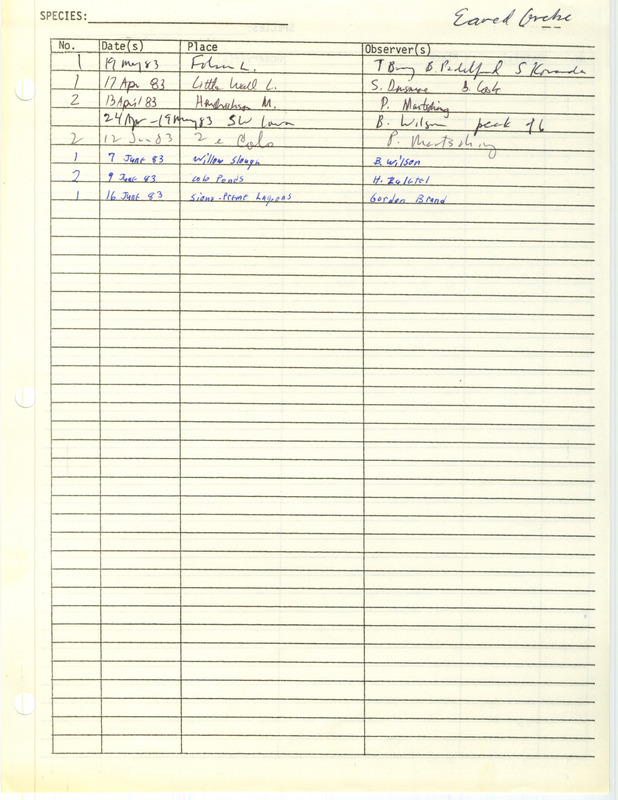 SPECIES: Eared Grebe
No. Date(s) Place Observer(s)
1 19 May 83 Folsom L. T Bray B. Padelford S Kovanda
1 17 Apr 83 Little Wall L. S. Dinsmore B. Cook
2 13 April 83 Hendrickson M. P. Martsching
24 Apr - 19 May 83 SW Iowa B. Wilson peak of 6
2 12 Jun 83 2 e Colo P. Martsching
1 7 June 83 Willow Slough B. Wilson
2 9 June 83 Colo Ponds H. Zaletel
1 16 June 83 Lagoons Gordon Brand